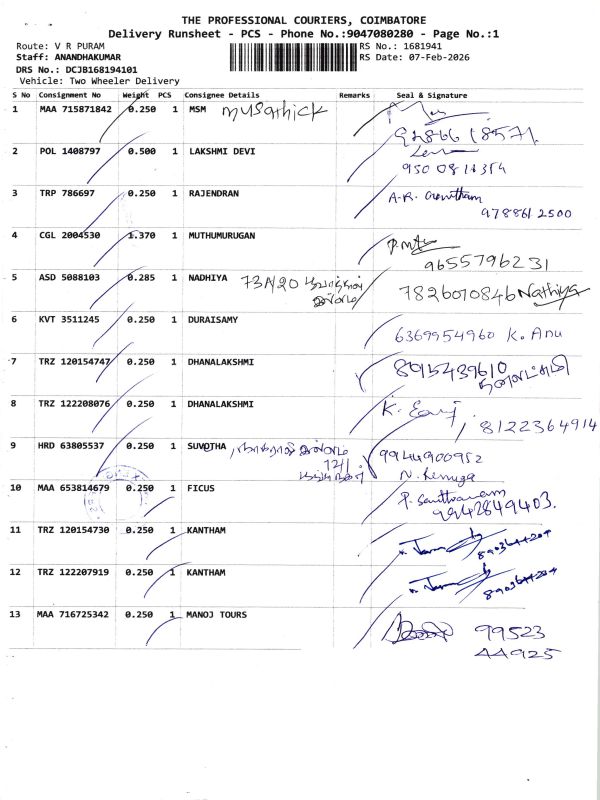 THE PROFESSIONAL COURIERS, COIMBATORE
Delivery Runsheet - PCS - Phone No.:9047080280 - Page No.:1
Route: V R PURAM RS No.: 1681941
Staff: ANANDHAKUMAR RS Date: 07-Feb-2026
DRS No.: DCJB168194101
Vehicle: Two Wheeler Delivery
S No Consignment No Weight PCS Consignee Details Remarks Seal & Signature
1 MAA 715871842 0.250 1 MSM musathick
92866 18571
2 POL 1408797 0.500 1 LAKSHMI DEVI
950 0814354
3 TRP 786697 0.250 1 RAJENDRAN A.R. Gowtham
978861 2500
4 CGL 2004530 1.370 1 MUTHUMURUGAN
9655796231
5 ASD 5088103 0.285 1 NADHIYA 73A/20 7826070846 Nathiya
6 KVT 3511245 0.250 1 DURAISAMY 6369954960 K. Anu
7 TRZ 120154747 0.250 1 DHANALAKSHMI 8915439610
தனலட்சுமி
8 TRZ 122208076 0.250 1 DHANALAKSHMI K.
8122364914
9 HRD 63805537 0.250 1 SUVOTHA 9944900952
N. Renuga
10 MAA 653814679 0.250 1 FICUS P. Santhanam
9942849403.
11 TRZ 120154730 0.250 1 KANTHAM
12 TRZ 122207919 0.250 1 KANTHAM
13 MAA 716725342 0.250 1 MANOJ TOURS 99523
44925